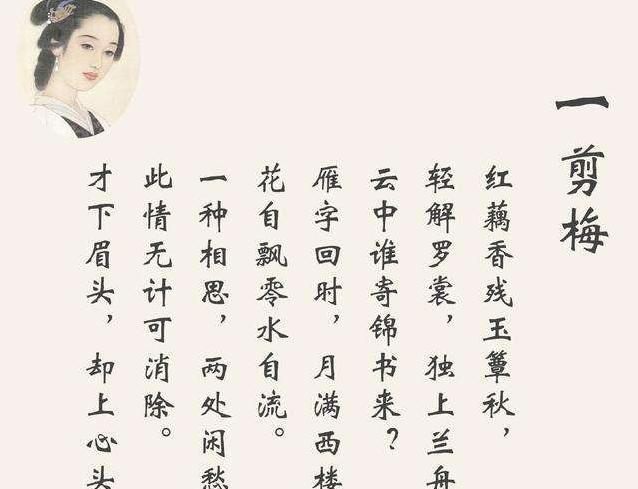 一剪梅
红藕香残玉簟秋，
轻解罗裳，独上兰舟
云中谁寄锦书来？
雁字回时，月满西楼
花自飘零水自流。
一种相思，两处闲愁
此情无计可消除。
才下眉头，却上心头